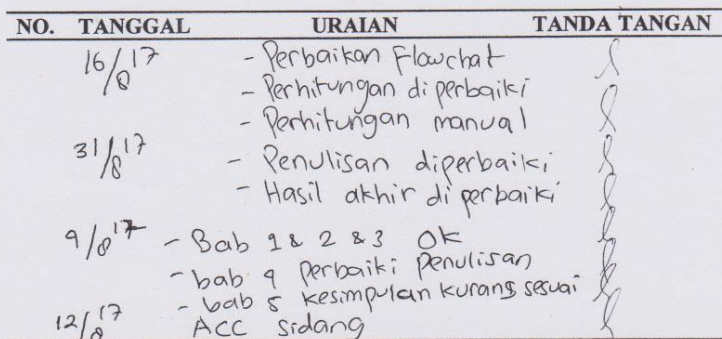 NO. TANGGAL URAIAN TANDA TANGAN
16/8 17 - Perbaikan Flowchat
- Perhitungan diperbaiki
- Perhitungan manual
31/8 17 - Penulisan diperbaiki
- Hasil akhir diperbaiki
9/8 17 - Bab 1 & 2 & 3 Ok
- bab 4 perbaiki penulisan
- bab 5 kesimpulan kurang sesuai
12/8 17 ACC sidang